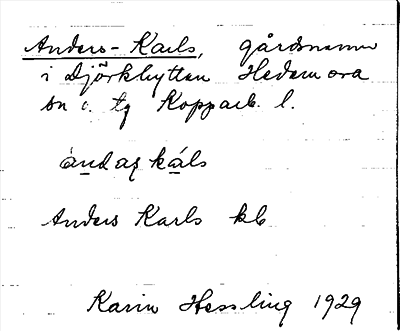 Anders-Karls, gårdsnamn
i Djörkhyttan Hedemora
sn o. tg Kopparb. l.
àndaş kál̄s
Anders Karls kb
Karin Hessling 1929